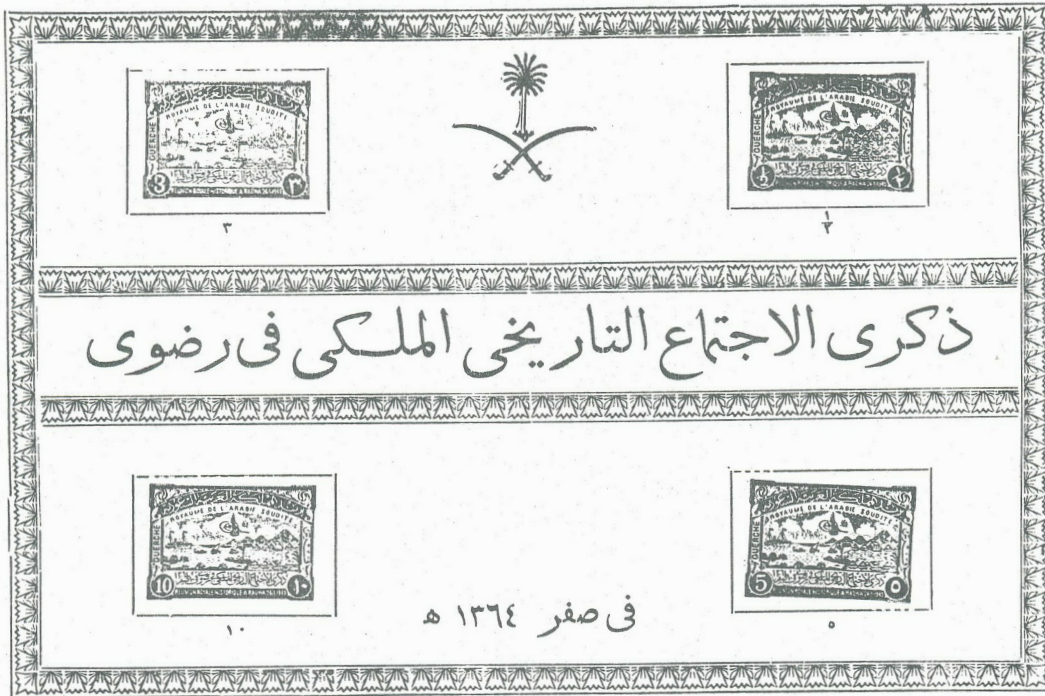 ROYAUME DE L'ARABIE SOUDITE
GUERCHE
½
٣
ROYAUME DE L'ARABIE SOUDITE
GUERCHE
3 ٣
٣
ذكرى الاجتماع التاريخى الملكى فى رضوى
ROYAUME DE L'ARABIE SOUDITE
GUERCHE
5 ٥
٥
ROYAUME DE L'ARABIE SOUDITE
GUERCHE
10 ١٠
١٠
فى صفر ١٣٦٤ ھ